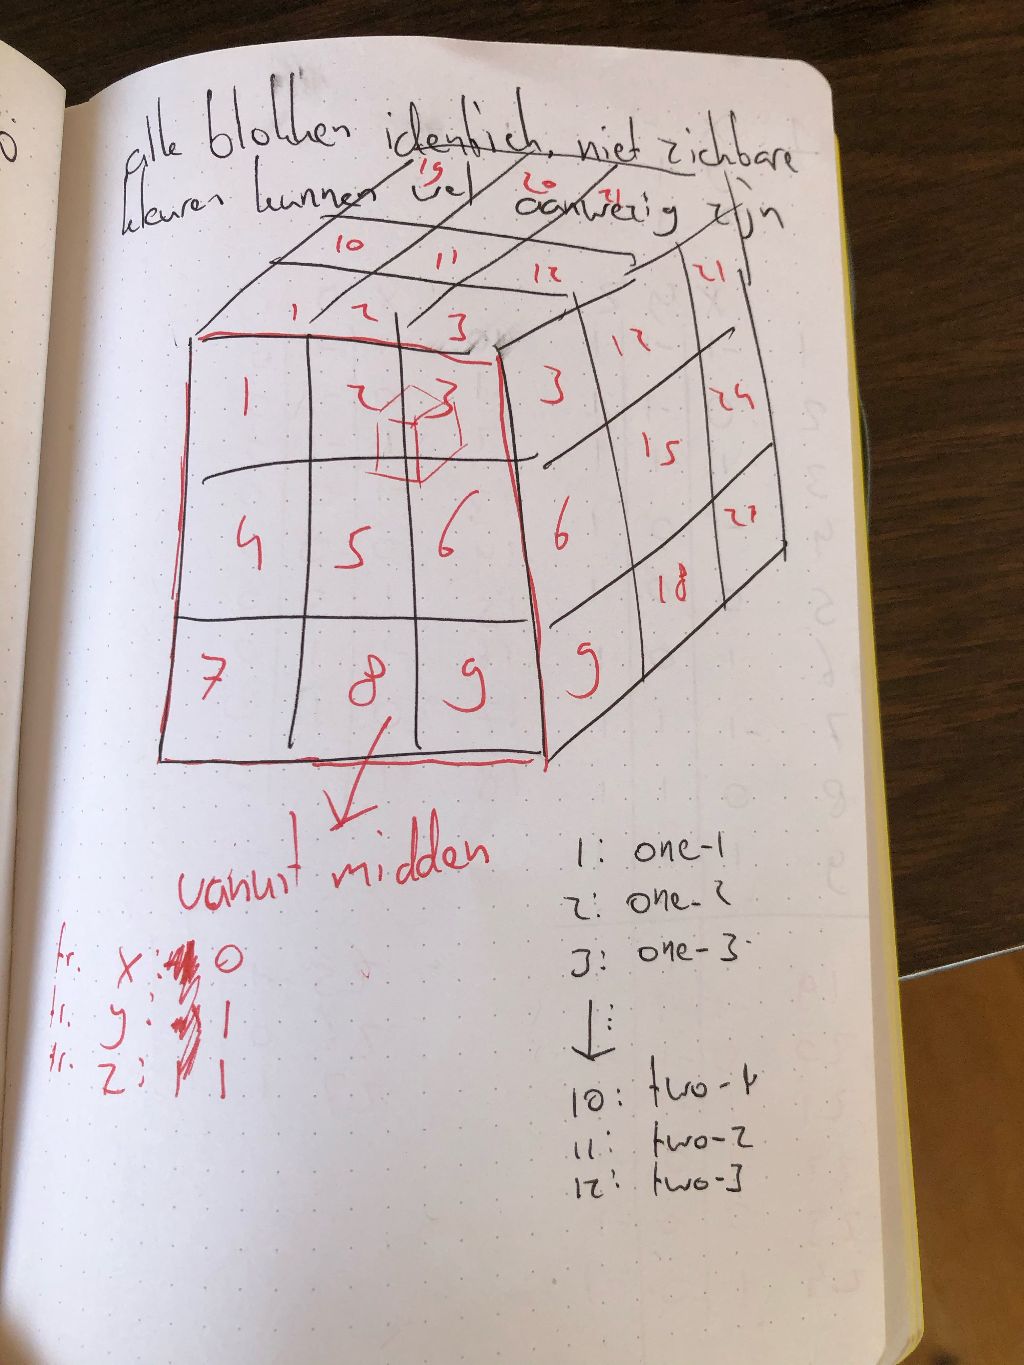 alle blokken identisch, niet zichbare
kleuren kunnen wel aanwezig zijn
19 20 21
10 11 12
1 2 3
21
12
3
24
15
6
27
18
9
1 2 3
4 5 6
7 8 9
vanuit midden
tr. x: 0
tr. y: 1
tr. z: 1
1: one-1
2: one-2
3: one-3
10: two-1
11: two-2
12: two-3